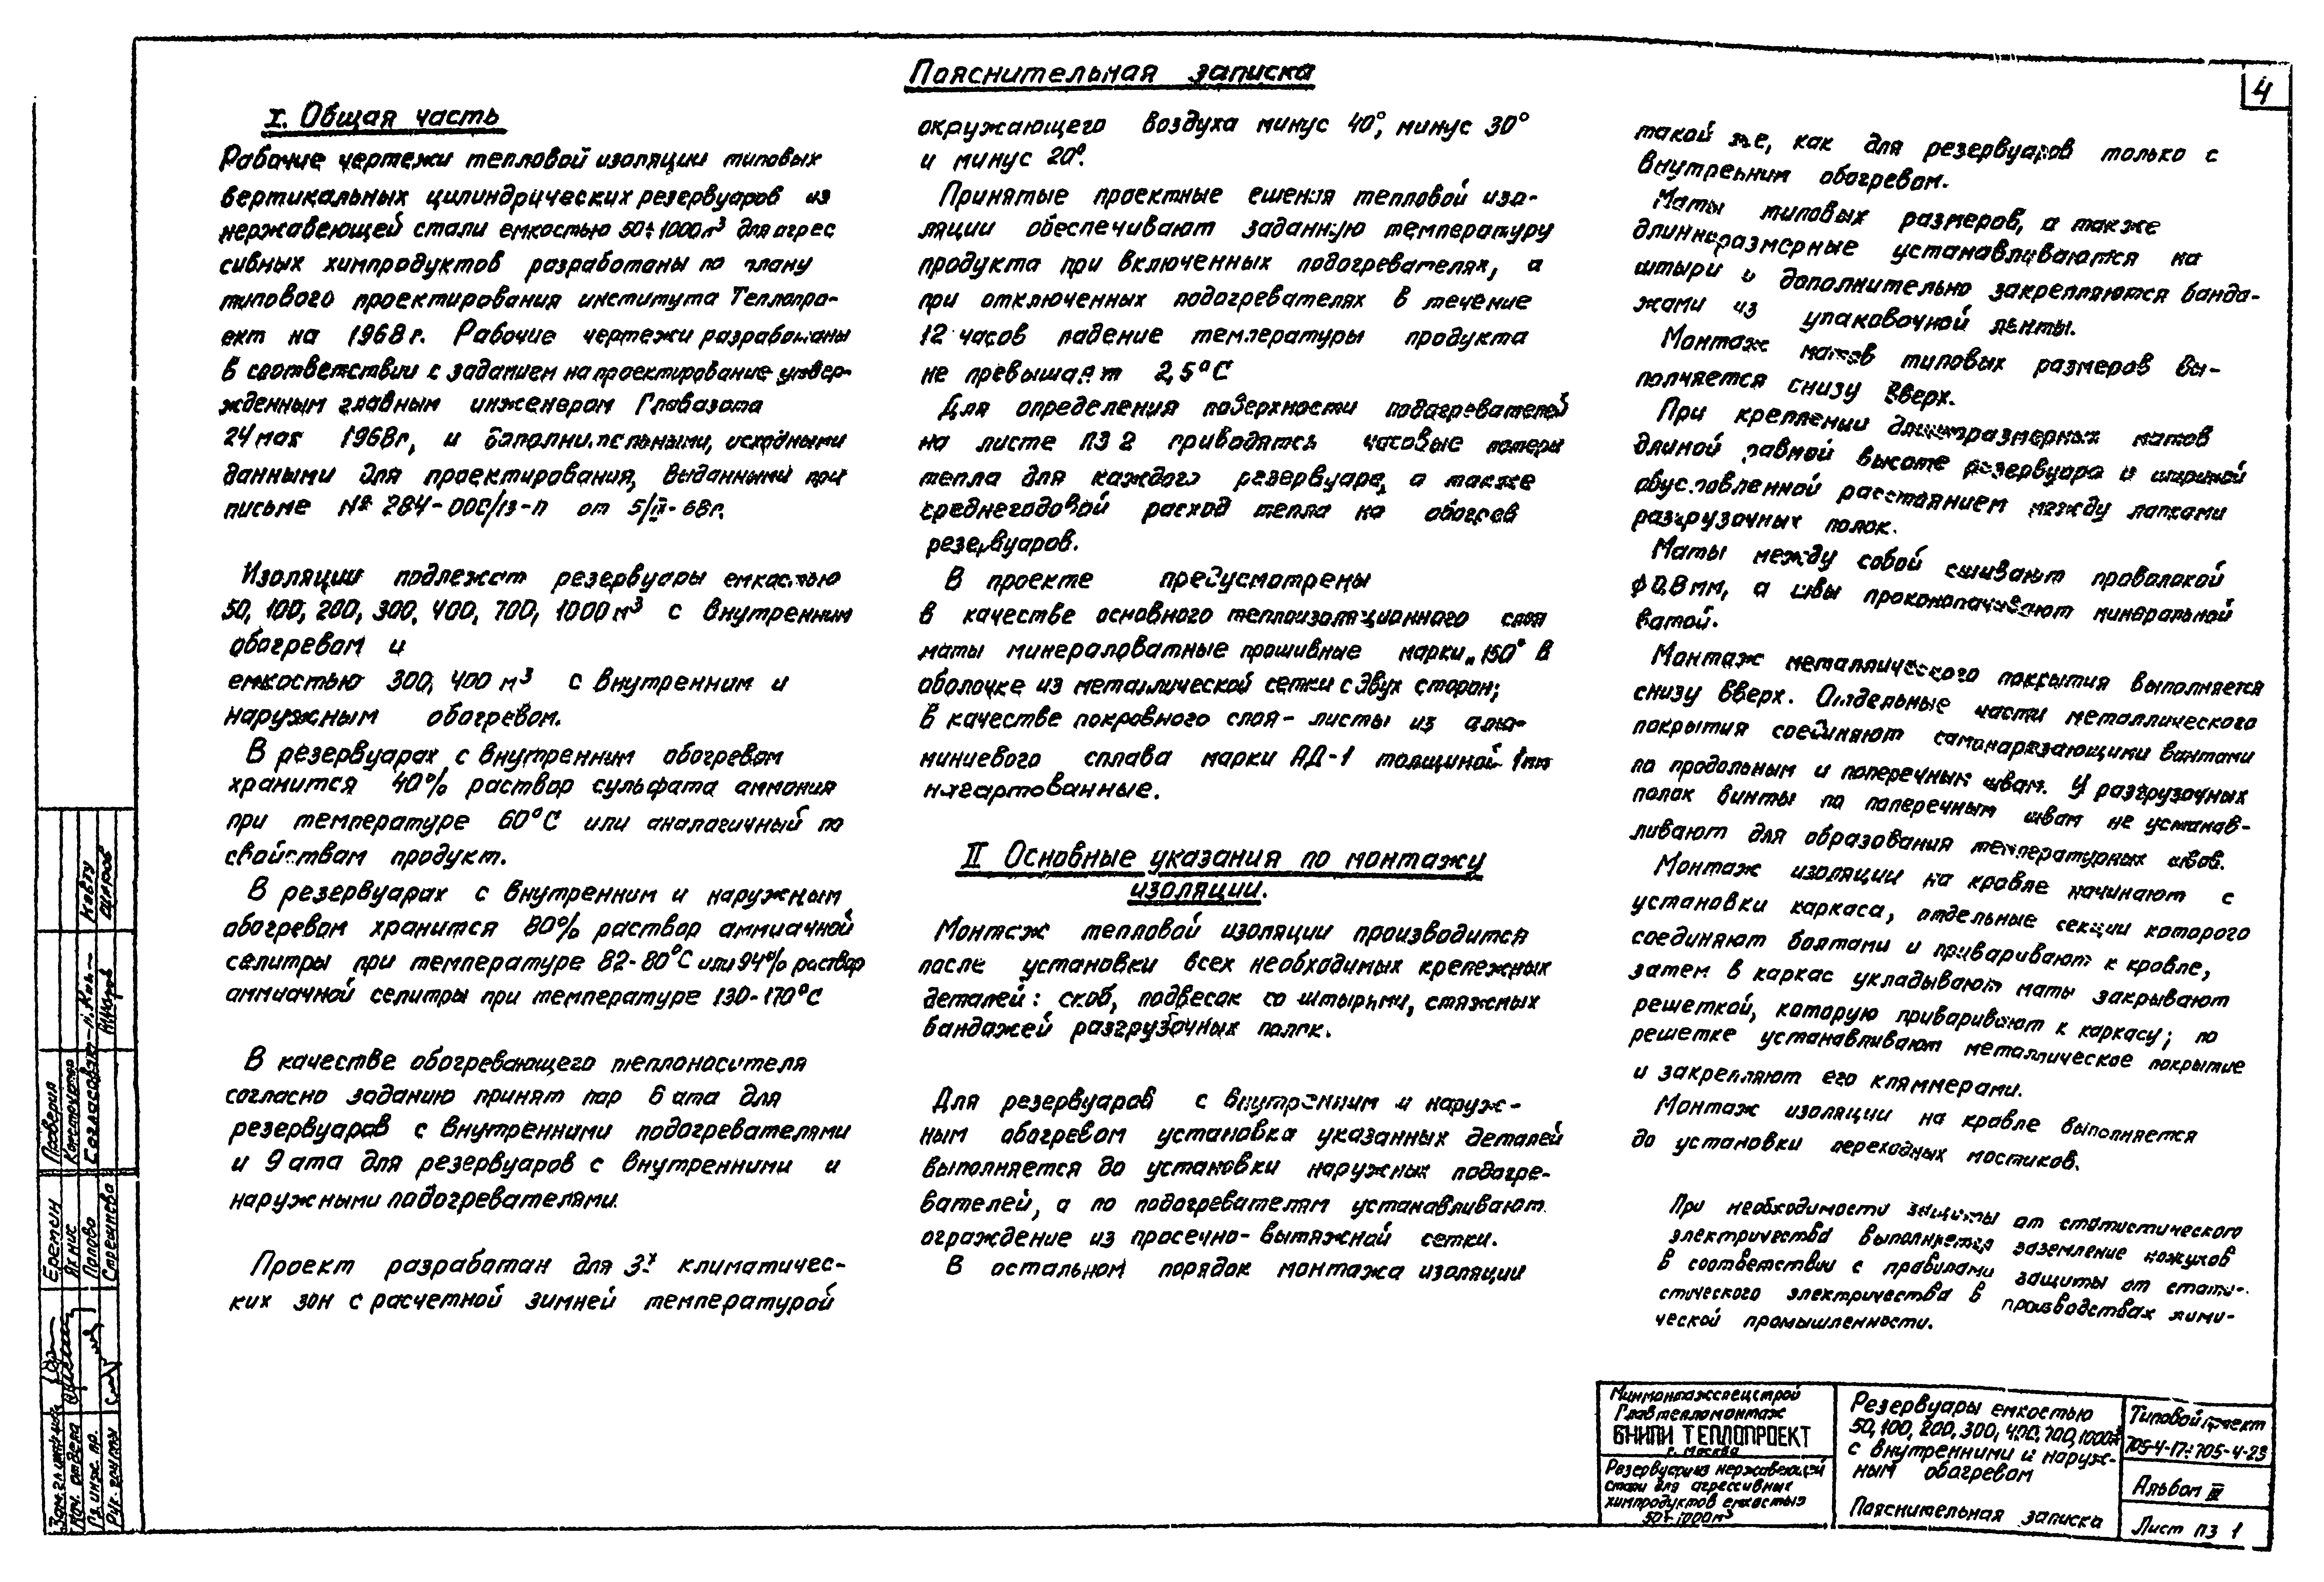 Пояснительная записка
4
I. Общая часть
Рабочие чертежи тепловой изоляции типовых
вертикальных цилиндрических резервуаров из
нержавеющей стали емкостью 50÷1000м³ для агрес
сивных химпродуктов разработаны по плану
типового проектирования института Теплопро-
ект на 1968г. Рабочие чертежи разработаны
в соответствии с заданием на проектирование утвер-
жденным главным инженером Главазота
24 мая 1968г, и дополнительными, исходными
данными для проектирования, выданными при
письме № 284-000/13-п от 5/II-68г.
Изоляции подлежат резервуары емкостью
50, 100, 200, 300, 400, 700, 1000 м³ с внутренним
обогревом и
емкостью 300, 400 м³ с внутренним и
наружным обогревом.
В резервуарах с внутренним обогревом
хранится 40% раствор сульфата аммония
при температуре 60°С или аналогичный по
свойствам продукт.
В резервуарах с внутренним и наружным
обогревом хранится 80% раствор аммиачной
селитры при температуре 82-80°С или 94% раствор
аммиачной селитры при температуре 130-170°С
В качестве обогревающего теплоносителя
согласно заданию принят пар 6 ата для
резервуаров с внутренними подогревателями
и 9 ата для резервуаров с внутренними и
наружными подогревателями.
Проект разработан для 3х климатичес-
ких зон с расчетной зимней температурой
окружающего воздуха минус 40°, минус 30°
и минус 20°.
Принятые проектные ешения тепловой изо-
ляции обеспечивают заданную температуру
продукта при включенных подогревателях, а
при отключенных подогревателях в течение
12 часов падение температуры продукта
не превышает 2,5°С
Для определения поверхности подогревателей
на листе ПЗ 2 приводятся часовые потери
тепла для каждого резервуара, а также
среднегодовой расход тепла на обогрев
резервуаров.
В проекте предусмотрены
в качестве основного теплоизоляционного слоя
маты минераловатные прошивные марки „150" в
оболочке из металлической сетки с двух сторон;
в качестве покровного слоя - листы из алю-
миниевого сплава марки АД-1 толщиной 1мм
нагартованные.
II Основные указания по монтажу
изоляции.
Монтаж тепловой изоляции производится
после установки всех необходимых крепежных
деталей: скоб, подвесок со штырями, стяжных
бандажей разгрузочных полок.
Для резервуаров с внутренним и наруж-
ным обогревом установка указанных деталей
выполняется до установки наружных подогре-
вателей, а по подогревателям устанавливают
ограждение из просечно-вытяжной сетки.
В остальном порядок монтажа изоляции
такой же, как для резервуаров только с
внутренним обогревом.
Маты типовых размеров, а также
длинноразмерные устанавливаются на
штыри и дополнительно закрепляются банда-
жами из упаковочной ленты.
Монтаж матов типовых размеров вы-
полняется снизу вверх.
При креплении длинноразмерных матов
длиной равной высоте резервуара и шириной
обусловленной расстоянием между лапками
разгрузочных полок.
Маты между собой сшивают проволокой
ф 0,8 мм, а швы проконопачивают минеральной
ватой.
Монтаж металлического покрытия выполняется
снизу вверх. Отдельные части металлического
покрытия соединяют самонарезающими винтами
по продольным и поперечным швам. У разгрузочных
полок винты по поперечным швам не устанав-
ливают для образования температурных швов.
Монтаж изоляции на кровле начинают с
установки каркаса, отдельные секции которого
соединяют болтами и приваривают к кровле,
затем в каркас укладывают маты закрывают
решеткой, которую приваривают к каркасу; по
решетке устанавливают металлическое покрытие
и закрепляют его кляммерами.
Монтаж изоляции на кровле выполняется
до установки переходных мостиков.
При необходимости защиты от статистического
электричества выполняется заземление кожухов
в соответствии с правилами защиты от стати-
стического электричества в производствах хими-
ческой промышленности.
Минмонтажспецстрой
Главтепломонтаж
ВНИПИ ТЕПЛОПРОЕКТ
г. Москва
Резервуары из нержавеющей
стали для агрессивных
химпродуктов емкостью
50÷1000м³
Резервуары емкостью
50, 100, 200, 300, 400, 700, 1000м³
с внутренними и наруж-
ным обогревом
Пояснительная записка
Типовой проект
705-4-17÷705-4-23
Альбом III
Лист ПЗ 1
Нач. отдела
Гл. инж. пр.
Рук. группы
Еремен
Попова
Стрешнева
Проверил
Согласовано